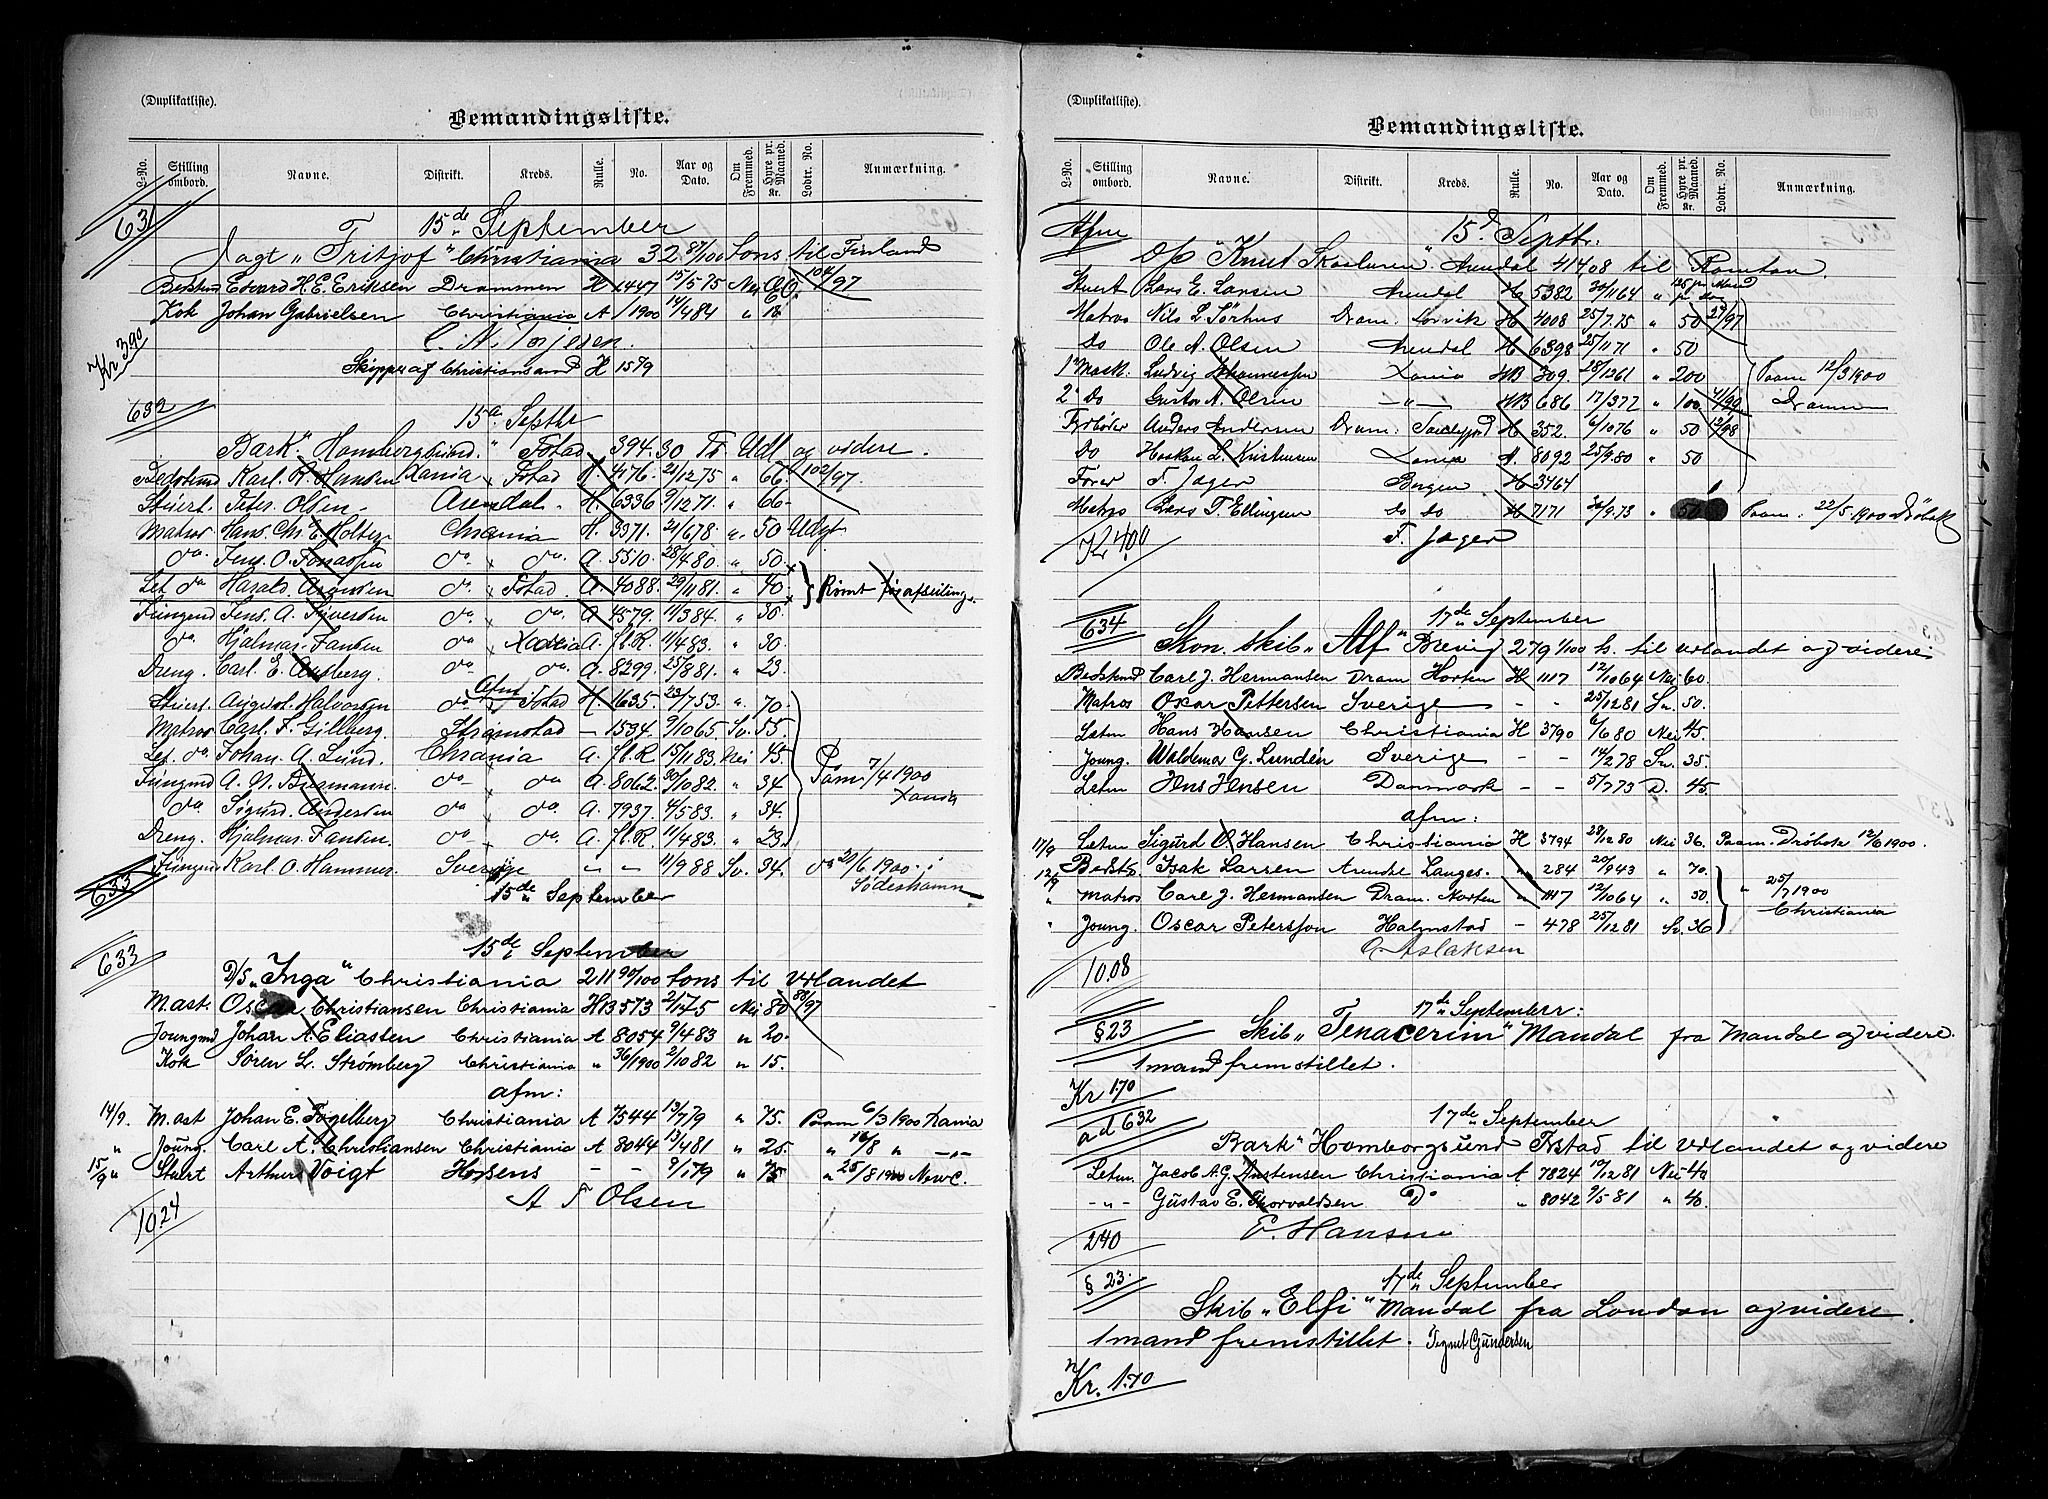 (Duplikatliste).
Bemandingsliste.
L-No. Stilling ombord. Navne. Distrikt. Kreds. Rulle. No. Aar og Dato. Om Fremmed. Hyre pr. Maaned. Kr. Lodtr. No. Anmærkning.
631 15de September
Jagt „Fritjof" Christiania 32 87/100 Tons til Finland
Bedstmd Edvard H. E. Eriksen Drammen H 1447 15/5 75 Nei 60. 104/97
Kok Johan Gabrielsen Christiania A 1/1900 14/4 84 " 18
C. N. Torjesen.
Kr 3.90
Skipper af Christiansand H 1579
632 15de Septbr
Bark „Homborgsund" Fstad 394.30 To Udl og videre.
Bedstmd Karl R. Hansen Xania Fstad H. 476. 21/12 75 " 66. 102/97.
Stuert. Peter Olsen Arendal H. 6336 9/12 71. " 66-
Matros Hans Chr. E. Holberg Chrania H. 3971. 21/6 78. " 50 Udgt
do. Jens. O. Jonassen do. do. A. 5510. 28/4 80. " 50.
Let. do Harald. Arvesen do. Fstad. A. 4088. 29/11 81. " 40. Rømt før afseiling.
Jüngmd Jens. A. Syversen do. do. A. 4579. 11/3 84. " 35.
do. Hjalmar. Jansen do Xania A. fl.R. 11/4 83. " 30
Dreng. Carl. E. Aasberg. do do. A. 8299. 25/8 81. " 23.
afm
Stuert. August. Halvorsen do. Fstad H. 1635. 23/7 53. " 70.
Matros Carl. F. Gillberg. Strømstad - 1534. 9/10 65. Sv. 55.
Let. do. Johan. A. Lund. Chrania A. fl.R. 15/11 83. Nei 45.
Jüngmd A. N. Bergmann. do do A. 8062. 30/10 82. " 34 Paam. 7/4 1900 Xania
do. Sigurd. Andersen do do. A. 7937. 4/5 83. " 34.
Dreng. Hjalmar. Jansen. do do. A. fl.R. 11/4 83. " 23
Jüngmd Karl. O. Hammer. Sverige " - 11/9 88 Sv. 34. do 20/6 1900 i Söderhamn
633 15de September
633 15de September
D/S „Inga" Christiania 211 90/100 tons til Udlandet
Mast. Oscar Christiansen Christiania H 13573 2/1 45 Nei 80 88/97
Joungmd Johan A. Eliassen Christiania A 8054 9/4 83 " 20.
Kok Søren L. Strømberg Christiania " 36/1900 2/10 82 " 15.
afm:
14/9. Mast Johan E. Fogelberg Christiania A 7544 13/7 79 " 75. Paam 6/3 1900 Xania
" Joung. Carl A. Christiansen Christiania A 8044 13/4 81 " 25. " 16/8 " -"-
15/9 " Stuert Arthur Voigt Horsens - - 9/1 79 " 75 " 25/8 1900 NewC.
A F Olsen
10.24
(Duplikatliste).
Bemandingsliste.
L-No. Stilling ombord. Navne. Distrikt. Kreds. Rulle. No. Aar og Dato. Om Fremmed. Hyre pr. Maaned. Kr. Lodtr. No. Anmærkning.
Afm 15de Septbr.
D/S „Knut Skaaluren" Arendal 414 08 til
Stuert Lars E. Larsen Arendal H 5382 20/11 64 " 125 pr Mand pr do
Matros Nils L. Sørhus Dram. Larvik H 4008 25/7. 75 " 50 27/97
do Ole A. Olsen Arendal H 6398 25/11 71 " 50
1ste Mask. Ludvig Johannessen Xania MB 309. 28/12 61 " 200 Paam 12/3 1900
2" do Gustav A. Olsen -"- MB 686 17/3 72 " 100 41/99 Dramn
Fyrbøter Anders Andersen Dram. H 352. 6/10 76 " 50 12/98
do Haakon L. Kristensen Xania A. 8092 25/9. 80 " 50
Fører F. Jager Bergen H 3464
Matros Lars T. Ellingsen do do H 7171 30/9. 73 " 50 Paam. 22/5. 1900 Drøbak
F. Jager
Kr 4.00
634 17de September
Skon. skib „Alf" Brevig 279 1/100 h. til Udlandet og videre
Bedstmd Carl J. Hermansen Dram Horten H 1117 12/10 64 Nei 60.
Matros Oscar Pettersen Sverige - - 25/12 81 Sv. 50.
Letm Hans Hansen Christiania H 3790 6/6 80 Nei 45.
Joung. Waldemar G. Lundén Sverige - - 14/2 78 Sv. 35.
Letm Jens Jensen Danmark - - 5/7 73 D. 45.
afm:
17/9 Letm Sigurd O. Hansen Christiania H 3794 29/12 80 Nei 36. Paam. Drøbak 12/6 1900.
12/9 Bedst. Isak Larsen Arendal Langes. " 284 20/9 43 " 70.
" Matros Carl J. Hermansen Dram. Horten " 1117 12/10 64 " 50 " 25/7 1900 Christiania
" Joung. Oscar Petersson Halmstad - 478 25/12 81 Sv. 36
O Aslaksen
10.08
17de September:
§ 23 Skib „Tenacerim" Mandal fra Mandal og videre.
1 mand fremstillet.
Kr 1.70
ad 632 17de September
Bark „Homborgsund Fstad til Udlandet og videre
Letm. Jacob A. G. Christiania A 7824 19/12 81 Nei 40
-"- Gustav E. Thorvaldsen Do " 8042 9/5 81 " 40.
E. Hansen
2.40
§ 23. 17de September
Skib „Elfi" Mandal fra London og videre.
1 mand fremstillet. Sigurd Gundersen
Kr. 1.70